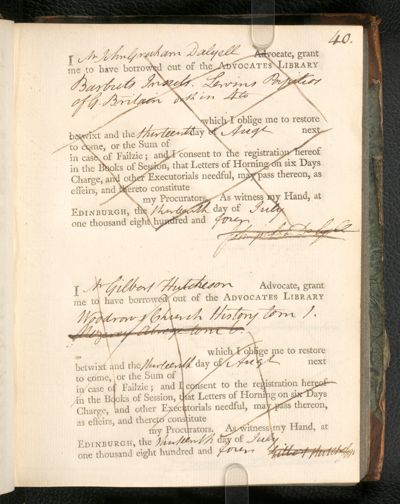 40.
I Mr John Graham Dalyell Advocate, grant
me to have borrowed out of the ADVOCATES LIBRARY
Barbuts Insects. Lewins Papilios
of G. Britain in 4to
which I oblige me to restore
betwixt and the thirteenth day of Augt next
to come, or the Sum of
in case of Failzie; and I consent to the registration hereof
in the Books of Session, that Letters of Horning on six Days
Charge, and other Executorials needful, may pass thereon, as
effeirs, and thereto constitute
my Procurators. As witness my Hand, at
EDINBURGH, the thirteenth day of July
one thousand eight hundred and four
I Mr Gilbert Hutcheson Advocate, grant
me to have borrowed out of the ADVOCATES LIBRARY
Woodrow's Church History tom 1.
which I oblige me to restore
betwixt and the thirteenth day of Augt next
to come, or the Sum of
in case of Failzie; and I consent to the registration hereof
in the Books of Session, that Letters of Horning on six Days
Charge, and other Executorials needful, may pass thereon,
as effeirs, and thereto constitute
my Procurators. As witness my Hand, at
EDINBURGH, the thirteenth day of July
one thousand eight hundred and four